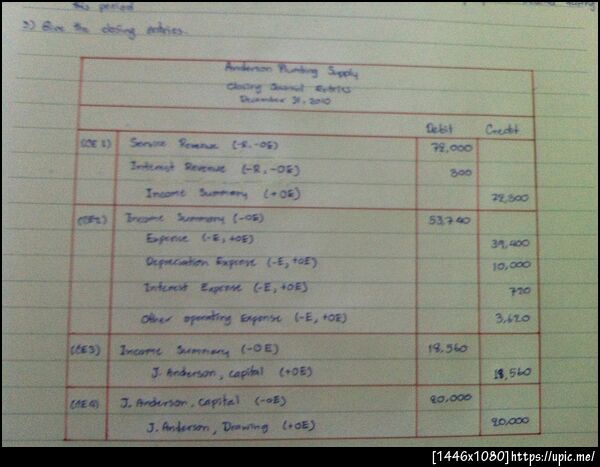 this period
3) Give the closing entries.
Anderson Plumbing Supply
Closing Journal Entries
December 31, 2010
Debit Credit
(CE 1) Service Revenue (-R, -OE) 72,000
Interest Revenue (-R, -OE) 300
Income Summary (+OE) 72,300
(CE2) Income Summary (-OE) 53,740
Expense (-E, +OE) 39,400
Depreciation Expense (-E, +OE) 10,000
Interest Expense (-E, +OE) 720
Other operating Expense (-E, +OE) 3,620
(CE3) Income Summary (-OE) 18,560
J. Anderson, Capital (+OE) 18,560
(CE4) J. Anderson, Capital (-OE) 20,000
J. Anderson, Drawing (+OE) 20,000
[1446x1080]https://upic.me/